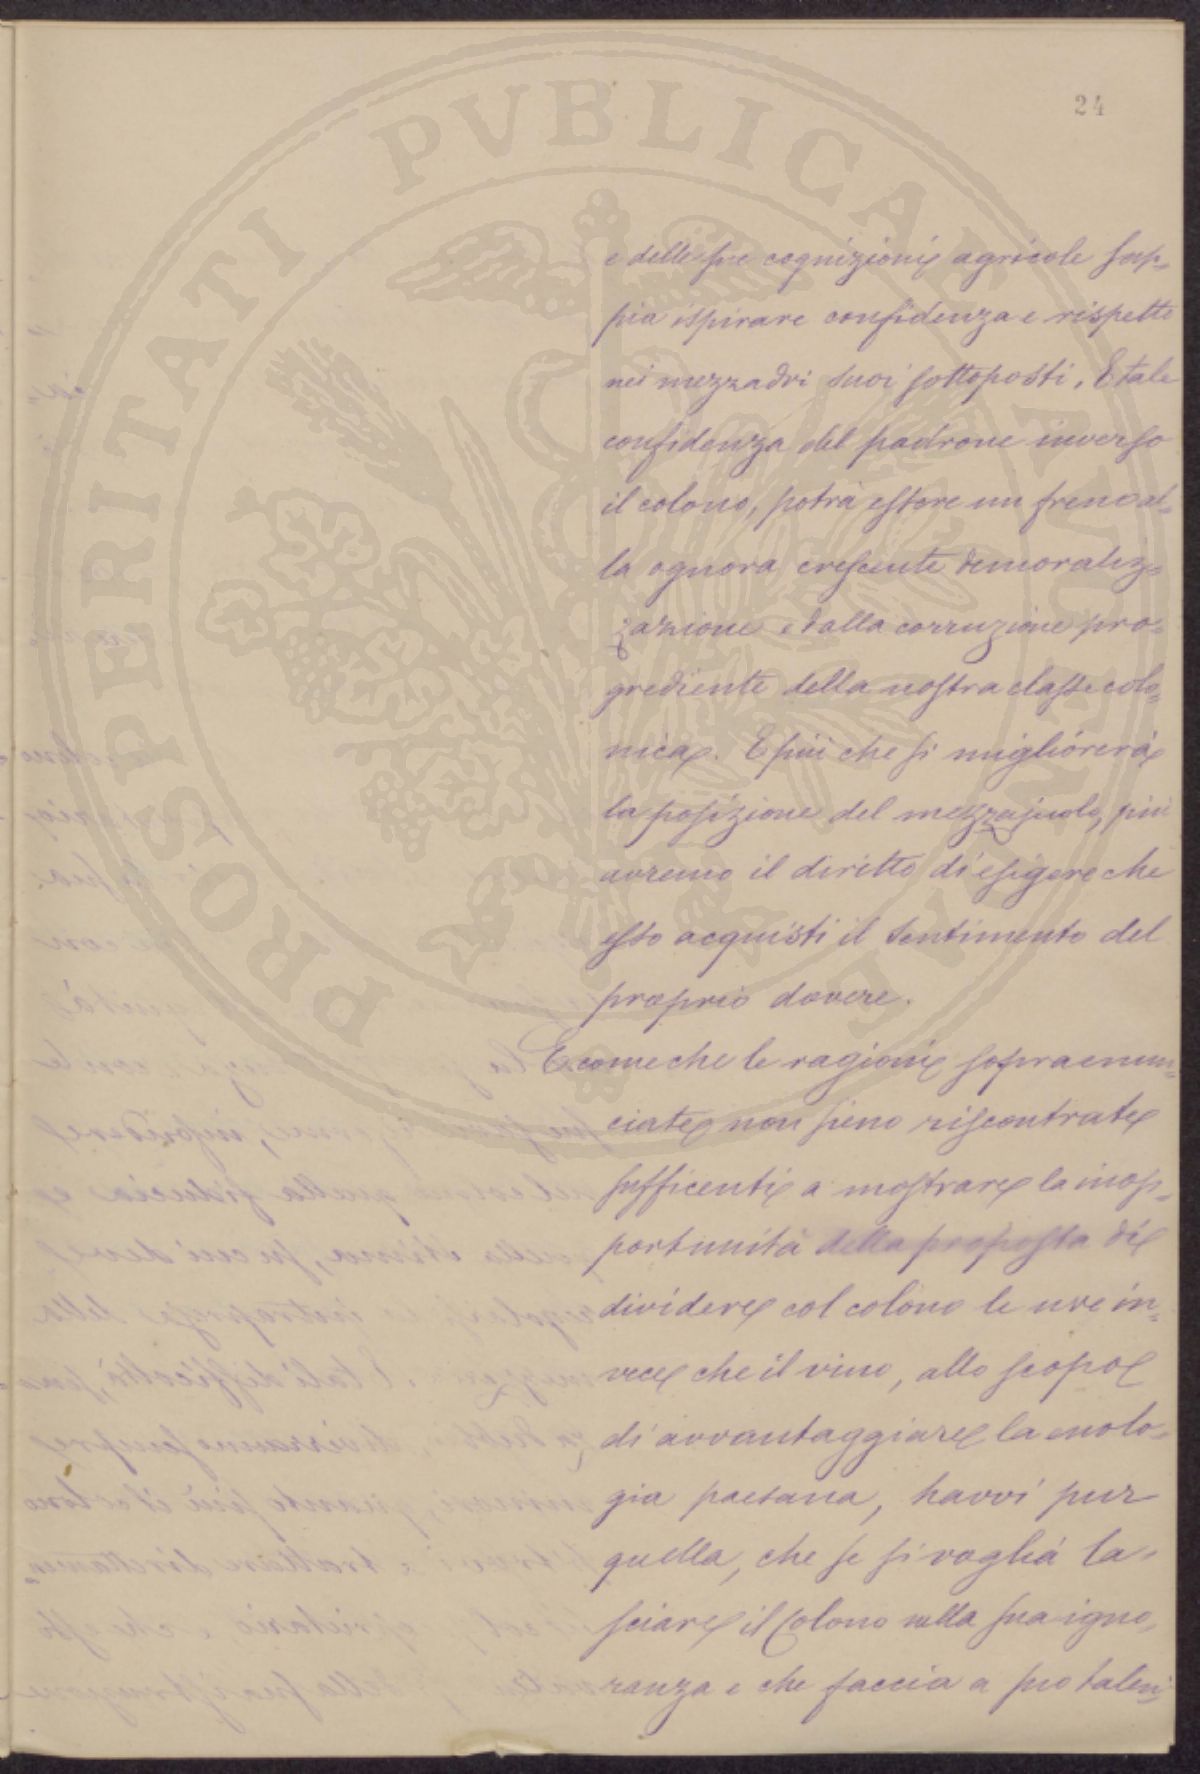 24
PROSPERITATI PVBLICAE AVGENDAE
e delle sue cognizioni agricole sap=
pia ispirare confidenza e rispetto
nei mezzadri suoi sottoposti. E tale
confidenza del padrone inverso
il colono, potrà essere un freno al=
la ognora crescente demoraliz=
zazione e dalla corruzione pro=
grediente della nostra classe colo=
nica. E più che si migliorerà
la posizione del mezzajuolo, più
avremo il diritto di esigere che
esso acquisti il sentimento del
proprio dovere.
E come che le ragioni sopra enun=
ciate non sieno riscontrate
sufficenti a mostrare la inop=
portunità della proposta di
dividere col colono le uve in=
vece che il vino, allo scopo
di avvantaggiare la enolo=
gia paesana, havvi pur
quella, che se si voglia la=
sciare il Colono nella sua igno=
ranza e che faccia a suo talen=